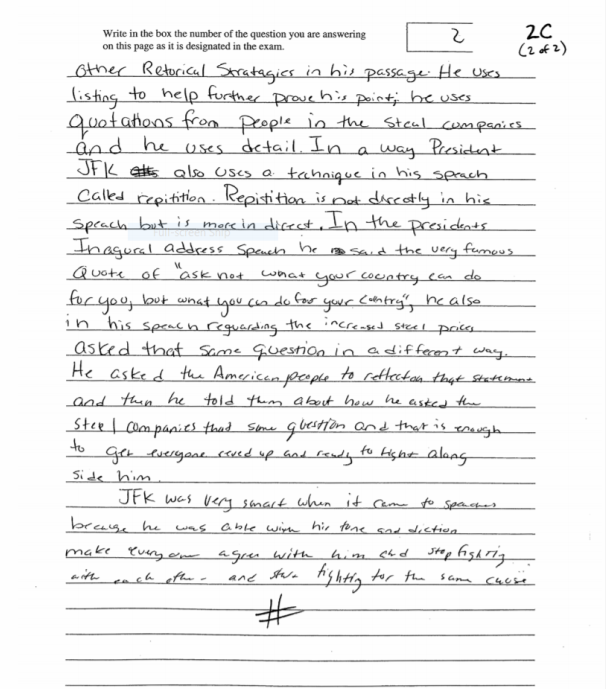 Write in the box the number of the question you are answering
on this page as it is designated in the exam.
2
2C
(2 of 2)
other Retorical Stratagies in his passage. He uses
listing to help further prove his point; he uses
quotations from people in the steal companies
and he uses detail. In a way President
JFK also uses a technique in his speach
called repitition. Repistition is not directly in his
speach but is more in direct. In the presidents
Inagural address speach he said the very famous
Quote of "ask not what your country can do
for you, but what you can do for your Contry", he also
in his speach reguarding the increased steel prices
asked that same question in a different way.
He asked the American people to reflect on that statement
and then he told them about how he asked the
steel companies that same question and that is enough
to get everyone reved up and ready to fight along
side him.
JFK was very smart when it came to speaches
because he was able with his tone and diction
make everyone agree with him and stop fighting
with each other and start fighting for the same cause
#